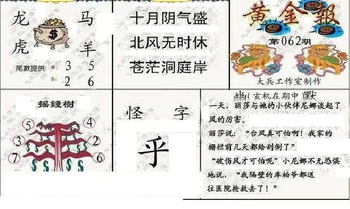 龙 马
虎 羊
尾數提供
3 2
5 6
十月阴气盛
北风无时休
苍茫洞庭岸
黄金報
第062期
大兵工作室制作
摇錢樹
5 4
7 6
2 3
怪字
乎
幽(玄机在期中
一天，丽莎与她的小伙伴尼娜谈起了
风的厉害。
丽莎说："台风真可怕啊！我家的
栅栏前几天都给刮倒了"
"破伤风才可怕呢"小尼娜不无恐惧
地说，"我隔壁的库柏爷都送
往医院抢救去了！"